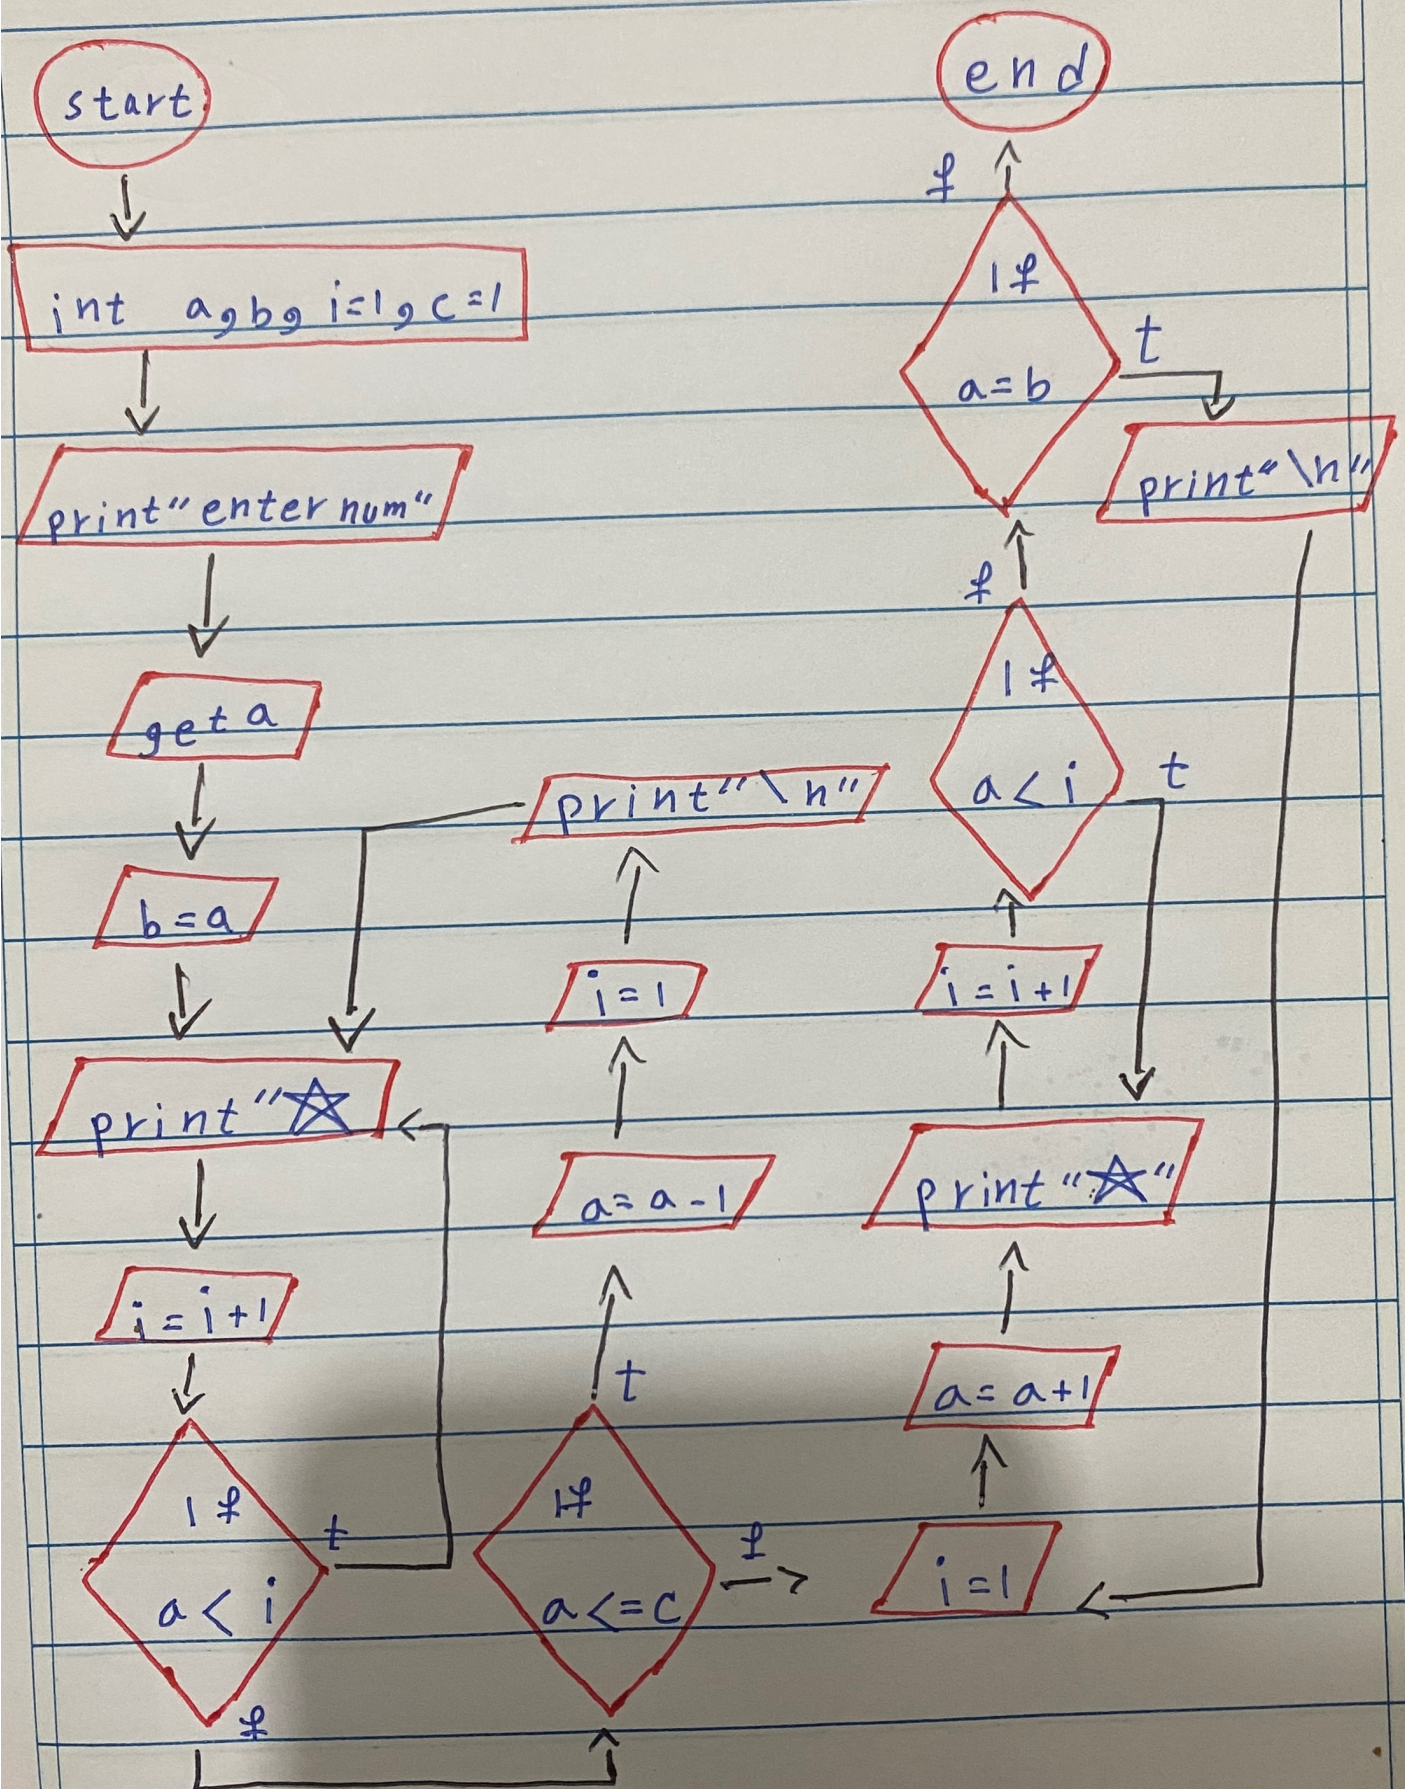 start
int a,b, i=1, c=1
print"enter num"
get a
b=a
print"☆
i=i+1
If
a<i
t
f
If
a<=c
t
f
a=a-1
i=1
print"\n"
i=1
a=a+1
print"☆"
i=i+1
If
a<i
t
f
If
a=b
t
f
print"\n"
end